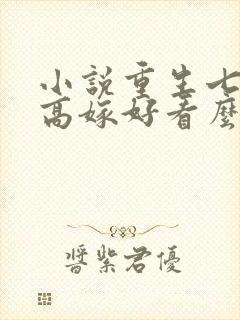 小說重生七
高嫁好看麼
醬紫君優